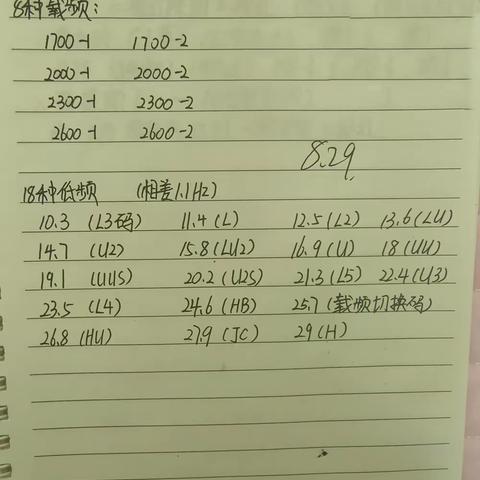 8种载频：
1700-1 1700-2
2000-1 2000-2
2300-1 2300-2
2600-1 2600-2
8.29
18种低频 (相差1.1Hz)
10.3 (L3码) 11.4 (L) 12.5 (L2) 13.6 (LU)
14.7 (U2) 15.8 (LU2) 16.9 (U) 18 (UU)
19.1 (UUS) 20.2 (U2S) 21.3 (L5) 22.4 (U3)
23.5 (L4) 24.6 (HB) 25.7 (载频切换码)
26.8 (HU) 27.9 (JC) 29 (H)